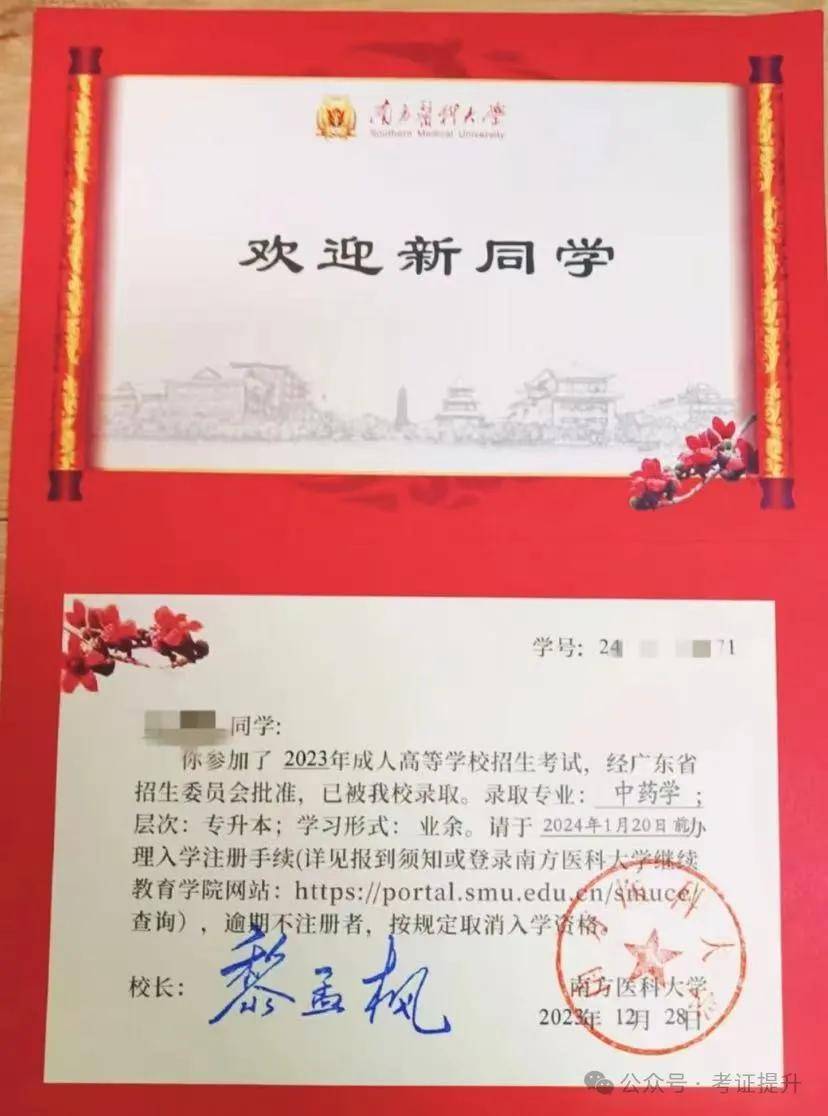 南方医科大学
Southern Medical University
欢迎新同学
学号：24 71
同学：
你参加了 2023年成人高等学校招生考试，经广东省
招生委员会批准，已被我校录取。录取专业：中药学；
层次：专升本；学习形式：业余。请于 2024年1月20日前办
理入学注册手续(详见报到须知或登录南方医科大学继续
教育学院网站：https://portal.smu.edu.cn/smuce/
查询），逾期不注册者，按规定取消入学资格。
校长：黎孟枫
南方医科大学
2023年 12月 28日
公众号·考证提升